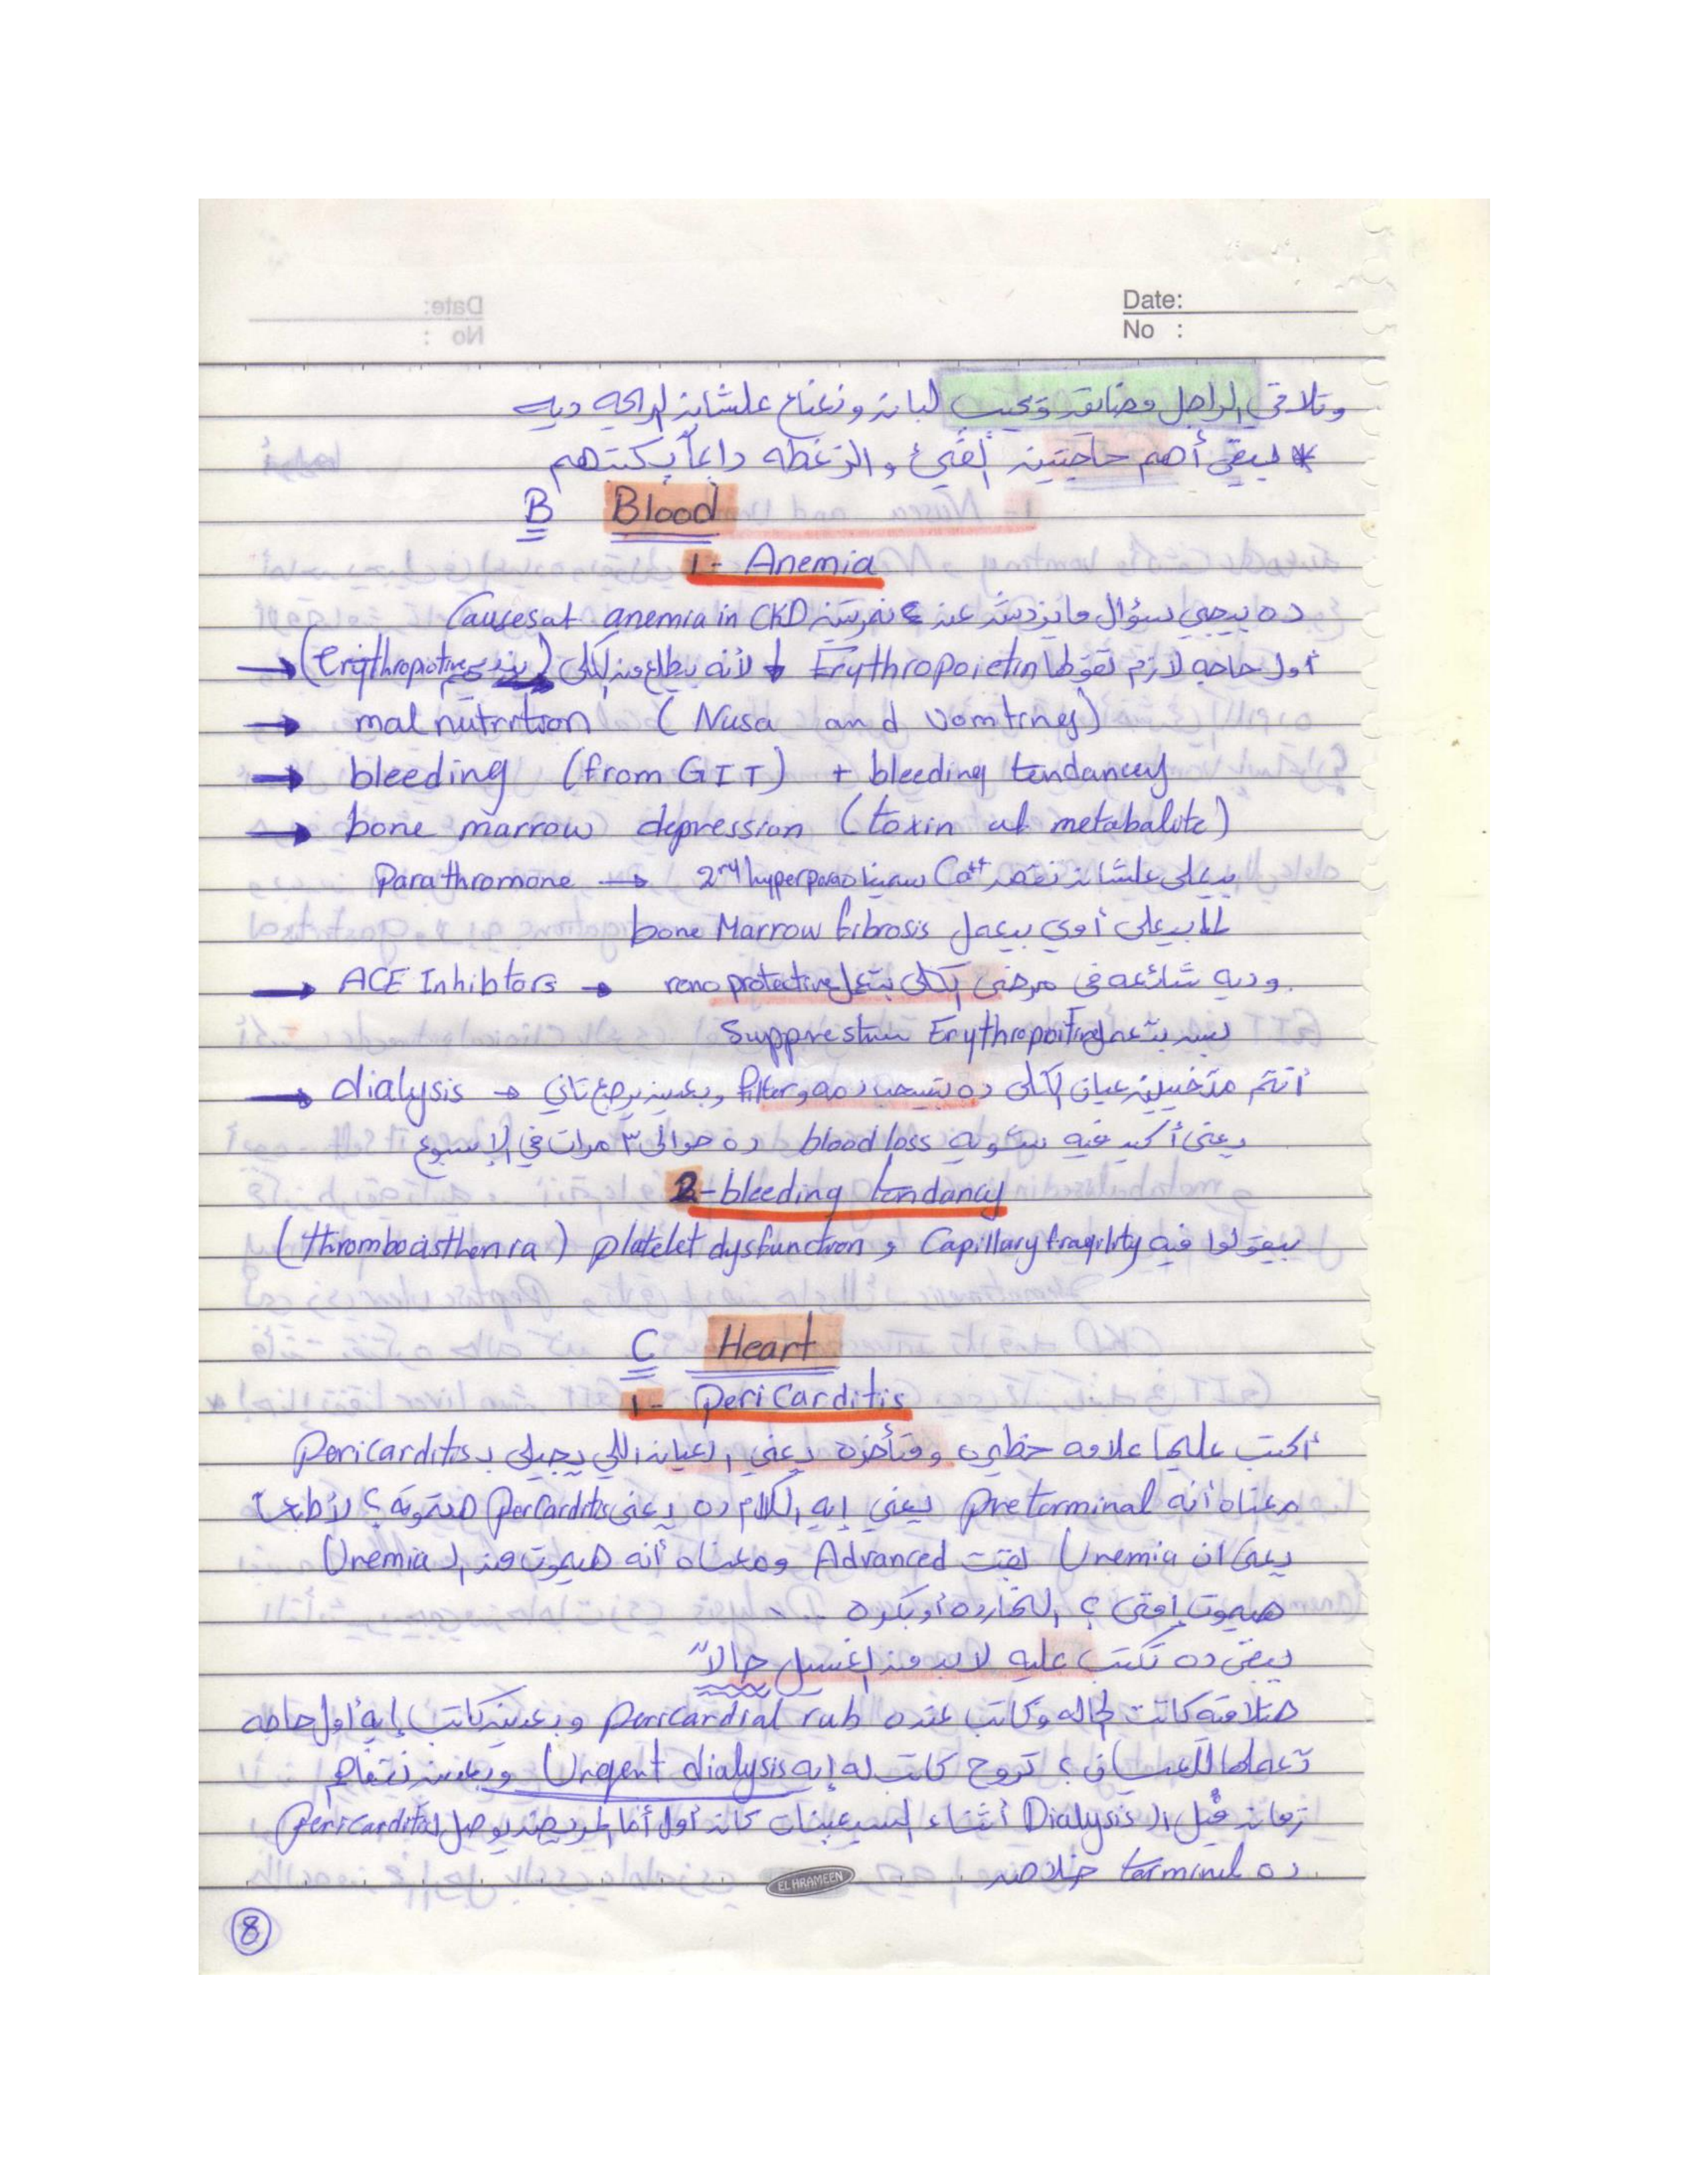 Date:
No :
وتلاقي الراجل متضايق ويجيب لبان ونعناع علشان الريحه ديه
* يبقى أهم حاجتين القئ والزغطه دايماً بكتبهم
B Blood
1- Anemia
ده بيجي سؤال مايزدش عن نمرتين Causes at anemia in CKD
→ أول حاجه لازم تقولها Erythropoietin ↓ لأنه بيطلع من الكلى (erythropiotive
→ malnutrition (Nusa and vomting)
→ bleeding (from GIT) + bleeding tendancy
→ bone marrow depression (toxin at metabalite)
Parathromone → 2ry hyperpara بيعلى علشان نقص Ca++ سمينا
لما بيعلى أوي بيعمل bone Marrow fibrosis
→ ACE Inhibtors → وديه شائعه في مرضى الكلى بتعمل reno protective
بس بتعمل Supprestion Erythropoitin
→ dialysis → أنتم متخيلين عيان الكلى ده بتسحب دمه و filter وبعدين يرجع تاني
يعنى أكيد فيه شويه blood loss ده حوالى ٣ مرات في الاسبوع
2-bleeding tendancy
بيقولوا فيه Capillary fragility و platelet dysfunction (thromboasthenia)
C Heart
1- periCarditis
أكتب عليها علامه خطيره ومتأخره يعني العيان اللي يجيلي بـ Pericarditis
معناه أنه preterminal يعني إيه الكلام ده يعنى perCarditis هتموته؟ لأ طبعاً
يعنى ان Uremia بقت Advanced ومعناه أنه هيموت من الـ Uremia
هيموت إمتى؟ النهارده أو بكره ...
يبقى ده تكتب عليه لابد من الغسيل حالاً
هتلاقيه كاتب الحاله وكاتب عنده pericardial rub وبعدين كاتب إيه أول حاجه
تعملها للعيان؟ تروح كاتب له إيه Urgent dialysis وبعدين نتفاهم
زمان قبل الـ Dialysis أثناء السبعينات كان أول أما المريض يوصل لـ pericarditis
ده terminal خلاص
EL HRAMEEN
8